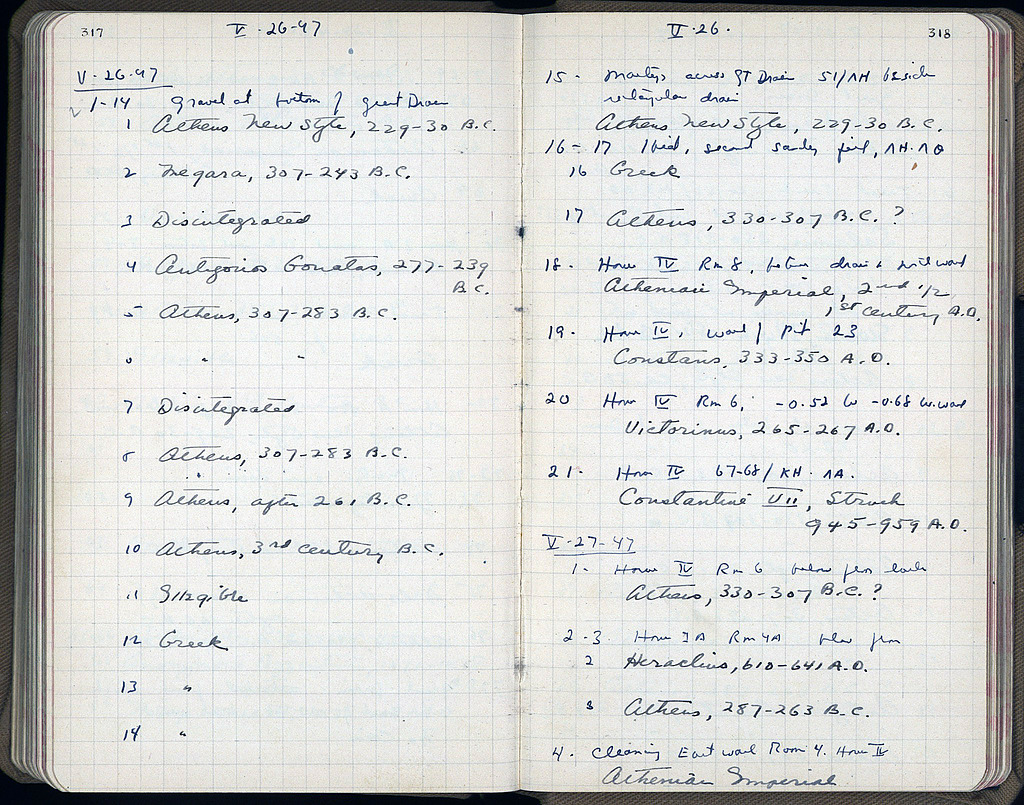 317
V · 26-47
V · 26-47
1-14 Gravel at bottom of great Drain
1 Athens New Style, 229-30 B.C.
2 Megara, 307-243 B.C.
3 Disintegrated
4 Antigonos Gonatas, 277-239
B.C.
5 Athens, 307-283 B.C.
6 " "
7 Disintegrated
8 Athens, 307-283 B.C.
9 Athens, after 261 B.C.
10 Athens, 3rd century B.C.
11 Illegible
12 Greek
13 "
14 "
V · 26 ·
318
15 - across GT Drain 51/ΛΗ beside
drain
Athens New Style, 229-30 B.C.
16-17 Ibid, second sandy fill, ΛΗ·ΛΘ
16 Greek
17 Athens, 330-307 B.C. ?
18 - House IV Rm 8, drain &
Athenian Imperial, 2nd 1/2,
1st century A.D.
19 - House IV, Pit 23
Constans, 333-350 A.D.
20 House IV Rm 6, -0.52 -0.68
Victorinus, 265-267 A.D.
21 - House IV 67-68/ΚΗ · ΛΑ
Constantine VII, Struck
945-959 A.D.
V-27-47
1 - House IV Rm 6 below floor
Athens, 330-307 B.C. ?
2-3 House Rm 4A floor
2 Heraclius, 610-641 A.D.
3 Athens, 287-263 B.C.
4 - Cleaning East wall Room 4, House IV
Athenian Imperial